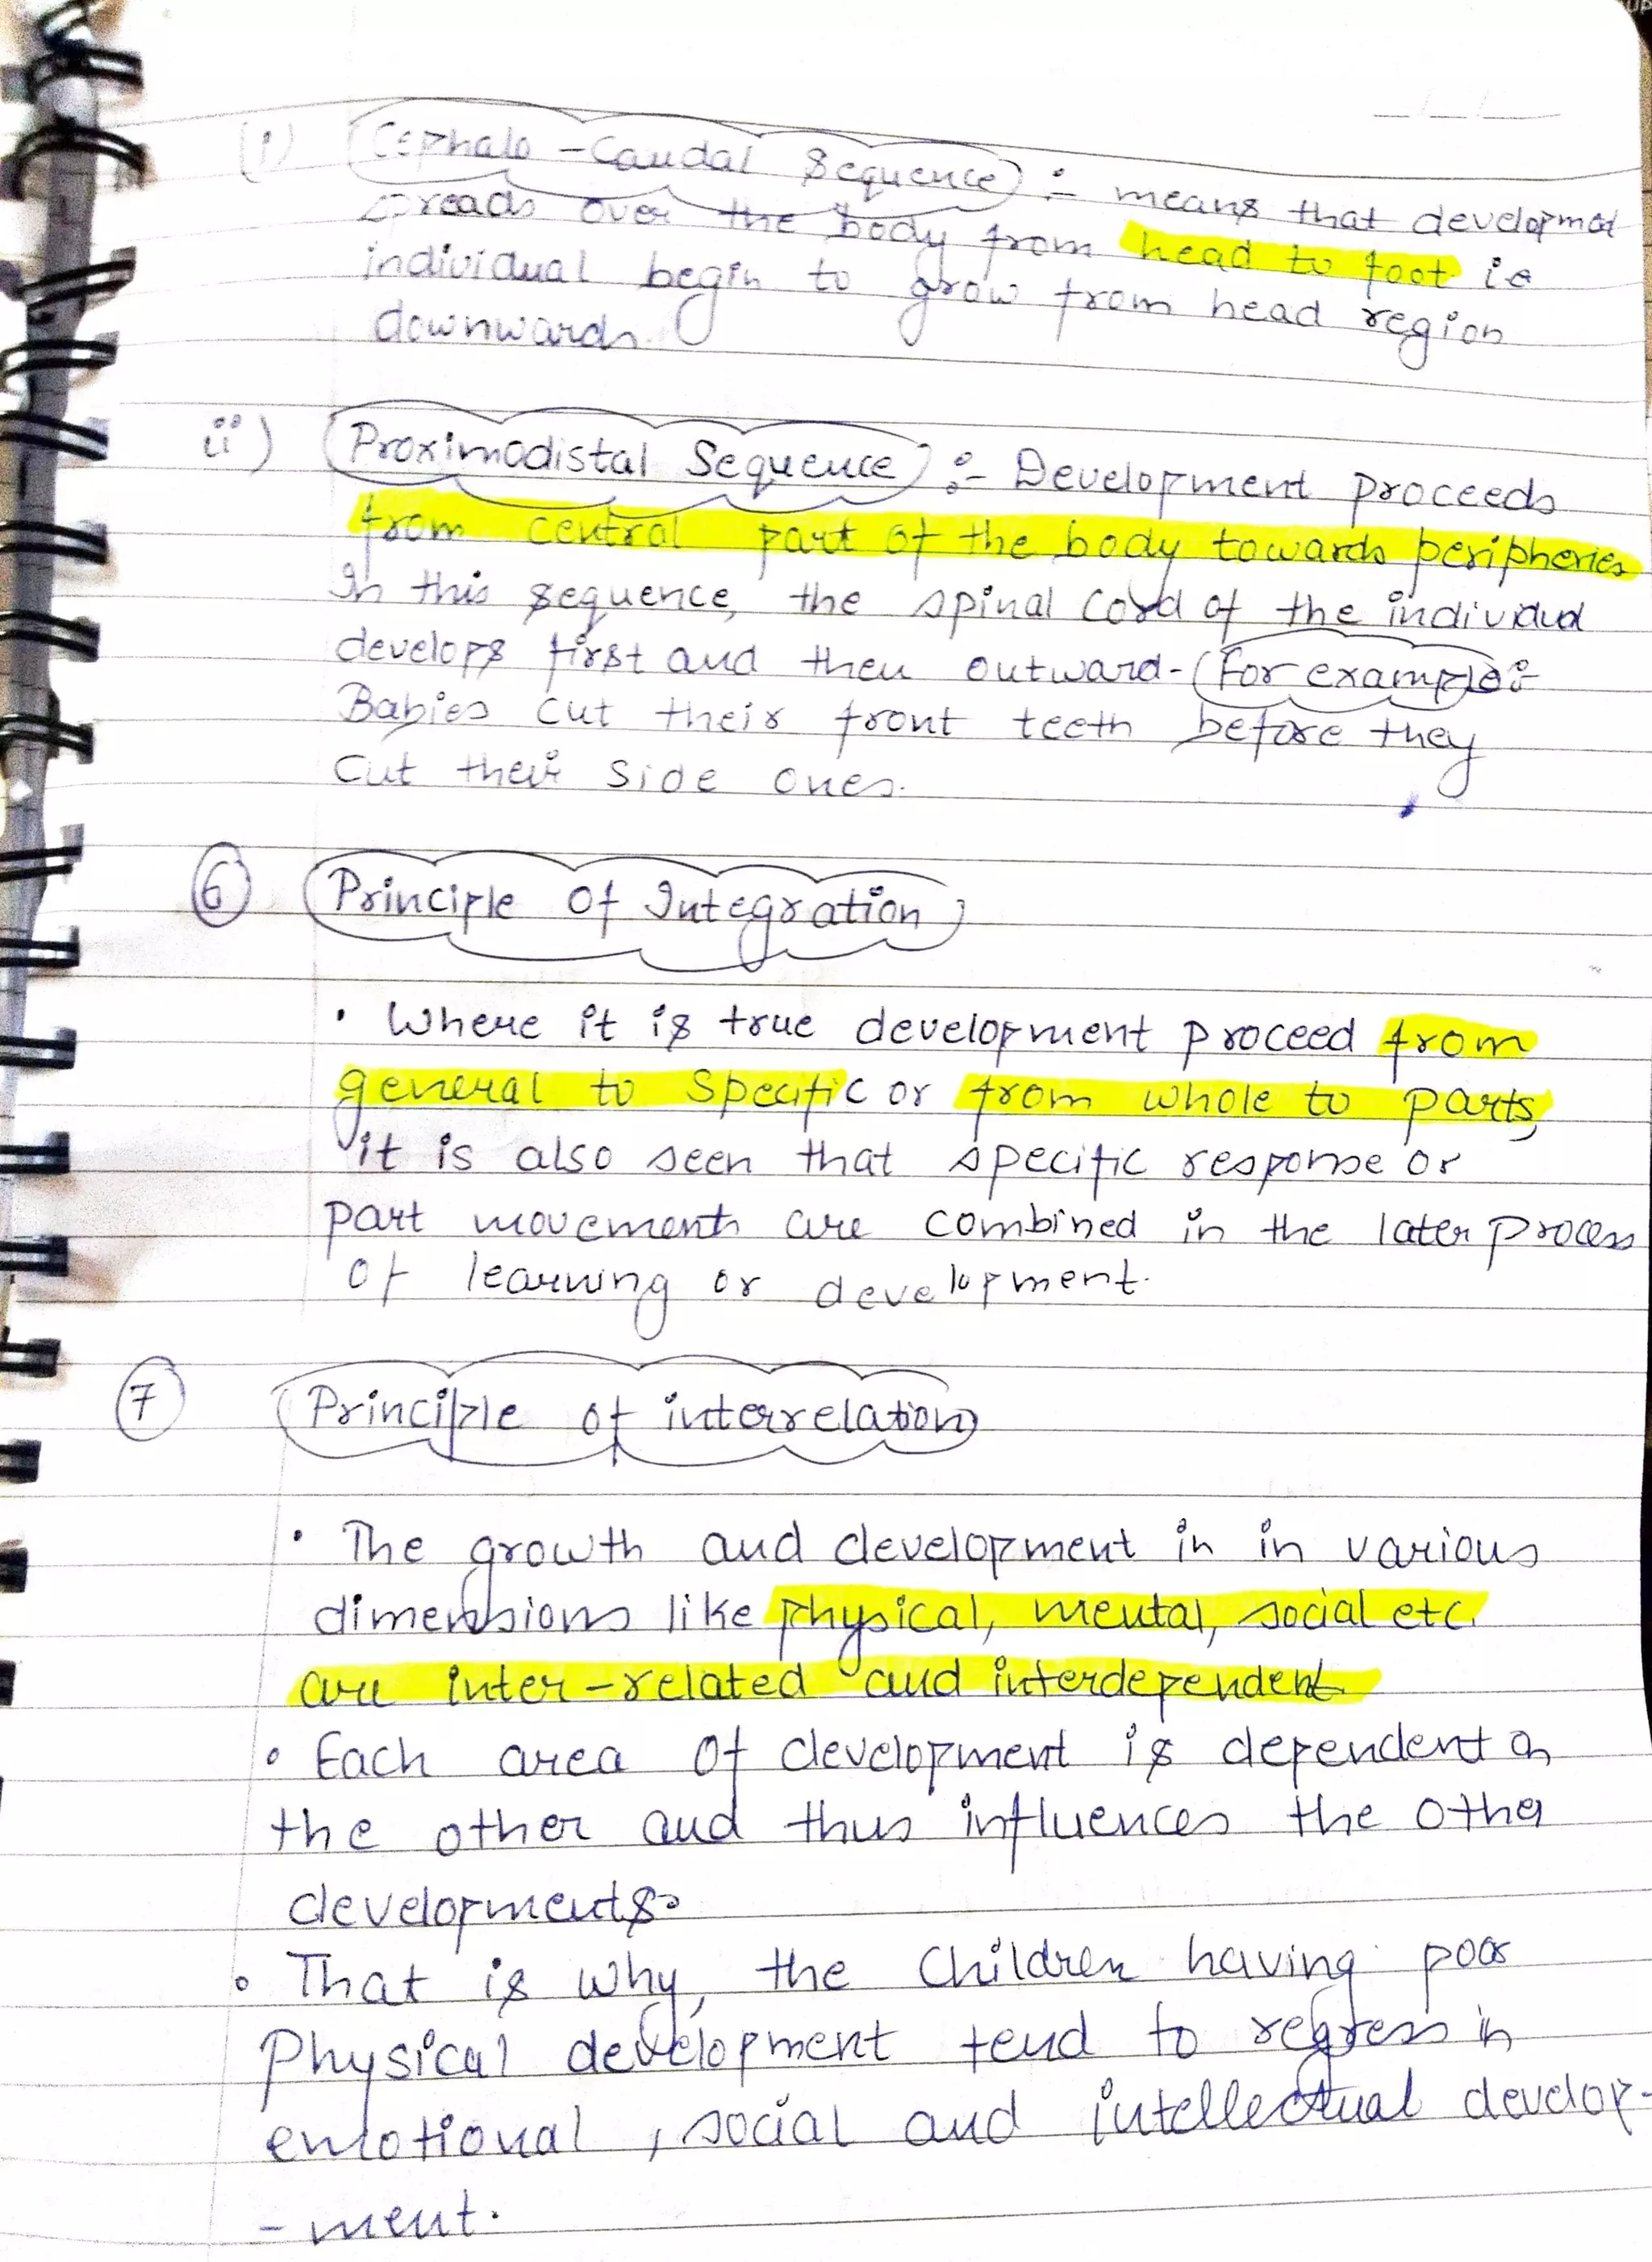 (i) Cephalo-Caudal Sequence :- means that developmet
spreads over the body from head to foot ie
individual begin to grow from head region
downwards.
ii) Proximodistal Sequence :- Development proceeds
from central part of the body towards peripheries
In this sequence, the spinal cord of the individual
develops first and then outward- (For example :-
Babies cut their front teeth before they
cut their side ones.
6 Principle Of Integration
• Where it is true development proceed from
general to specific or from whole to parts,
it is also seen that specific response or
part movements are combined in the later process
of learning or development.
7 Principle of interrelation
• The growth and development in in various
dimensions like physical, mental, social etc.
are inter-related and interdependent
• Each area of development is dependent on
the other and thus influences the other
developments.
• That is why, the children having poor
Physical development tend to regress in
emotional, social and intellectual develop-
-ment.